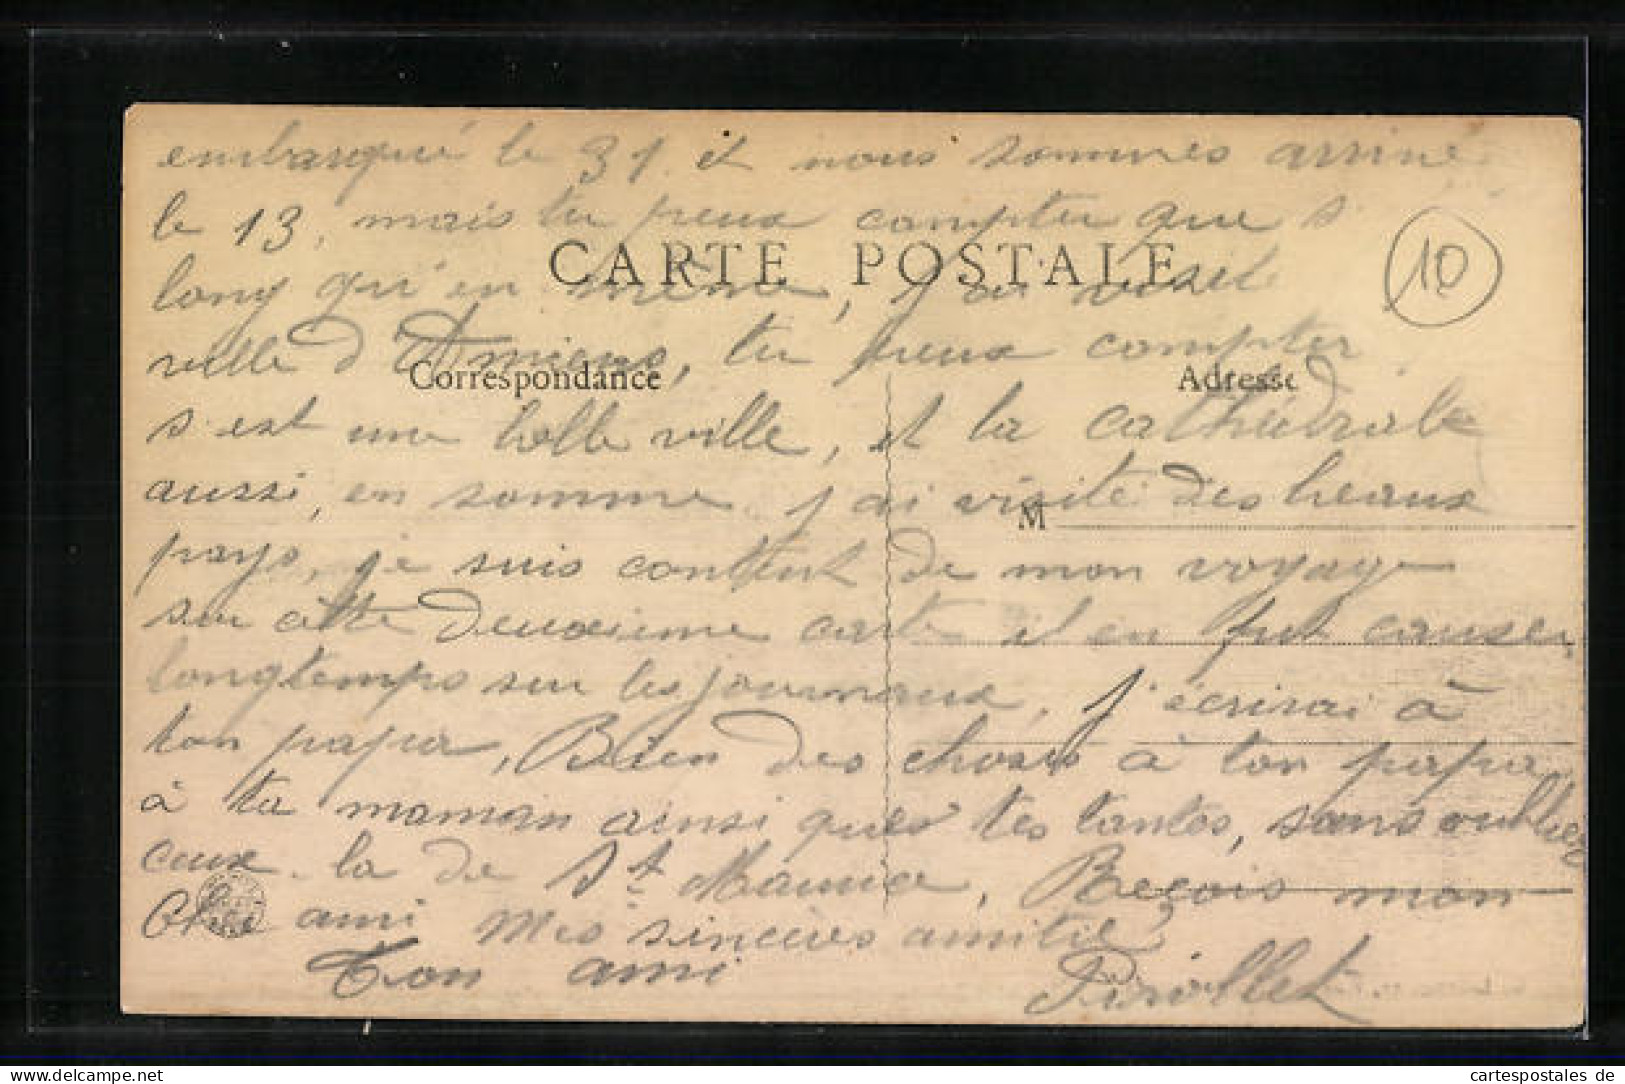 embarqué le 31. et nous sommes arrivé
le 13, mais tu peux compter que s
CARTE POSTALE
long qu'en même, j'ai visité
10
ville d'Amiens, tu peux compter
Correspondance
Adresse
s'est une belle ville, et la cathédrale
aussi, en somme j'ai visité des beaux
M
pays, je suis content de mon voyage
sur cette deuxième carte il en fut causer
longtemps sur les journaux, j'écrirai à
ton papa, Bien des choses à ton papa
à ta maman ainsi ques tes tantes, sans oubliez
ceux la de St Maurice, Reçois mon
Cher ami mes sincères amitié
Ton ami
cartespostales de